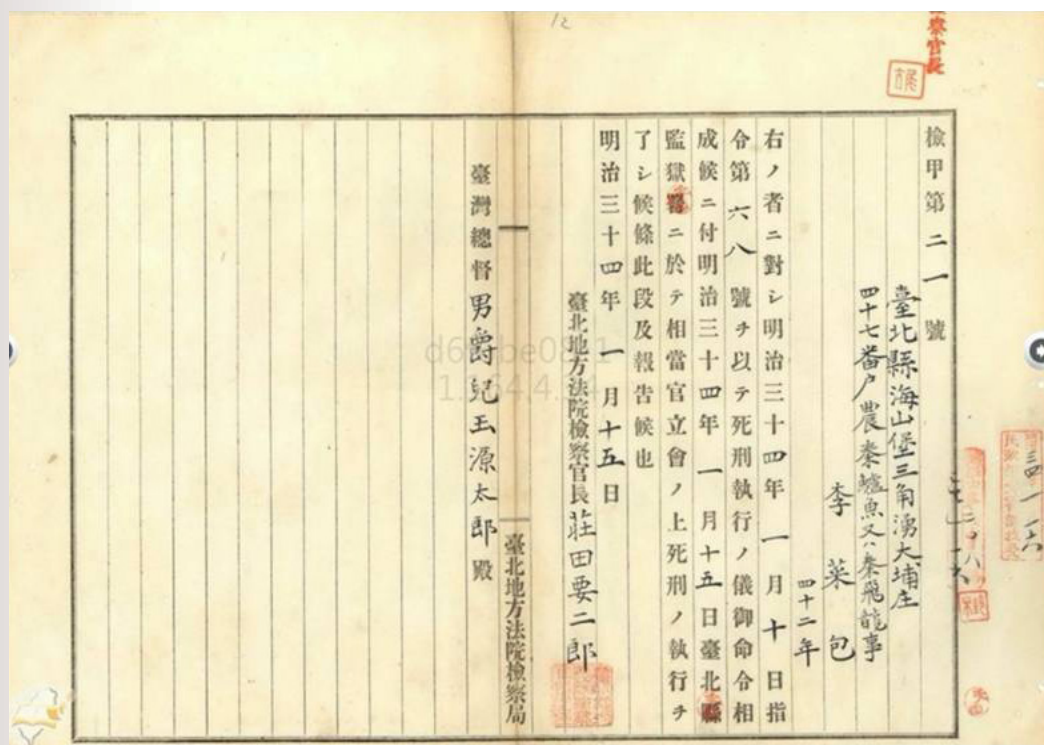 12
檢甲第二一號
臺北縣海山堡三角湧大埔庄
四十七番戶農秦鱸魚又ハ秦飛龍事
李菜包
四十二年
右ノ者ニ對シ明治三十四年一月十日指
令第六八號ヲ以テ死刑執行ノ儀御命令相
成候ニ付明治三十四年一月十五日臺北縣
監獄署ニ於テ相當官立會ノ上死刑ノ執行ヲ
了シ候條此段及報告候也
明治三十四年一月十五日
臺北地方法院檢察官長莊田要二郎
臺灣總督男爵兒玉源太郎殿
臺北地方法院檢察局